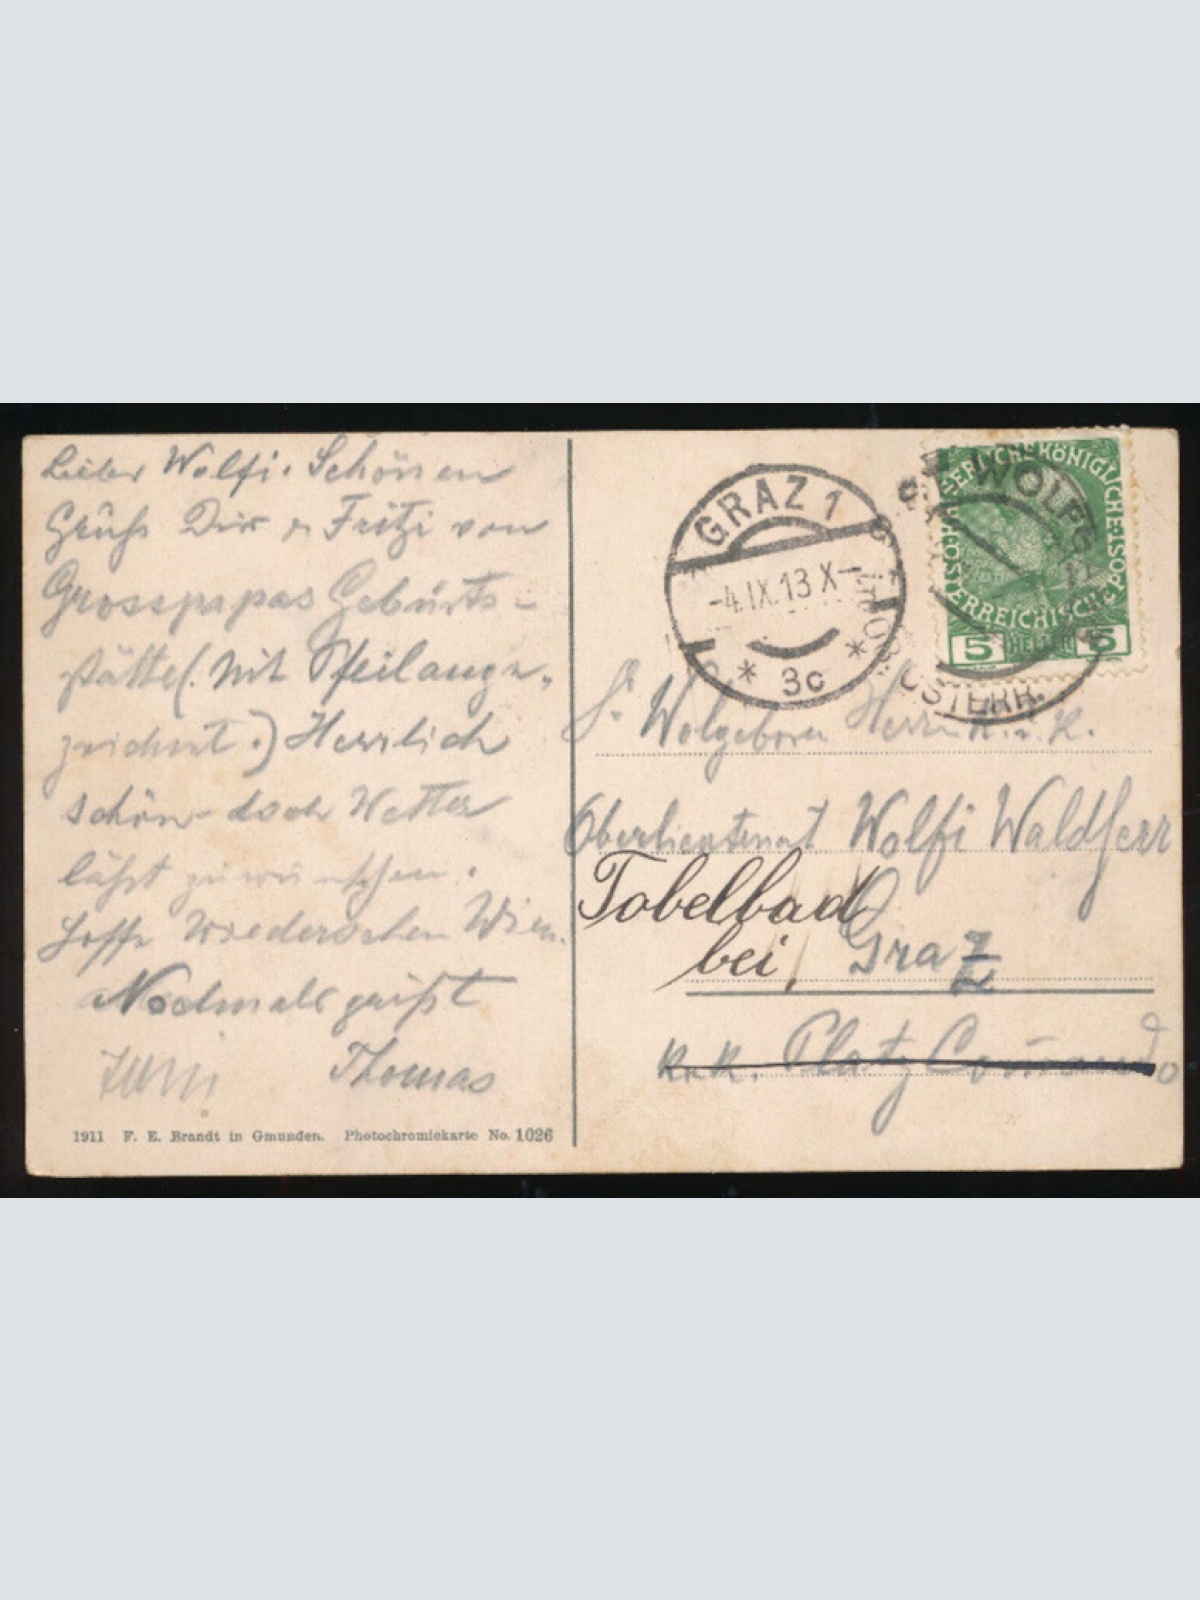 Lieber Wolfi. Schönen
Gruß Dir u Fritzi von
Grosspapas Geburts-
stätte (. Mit Pfeil ange-
zeichnet.) Herrlich
schön - doch Wetter
läßt zu wünschen.
Hoffe Wiedersehen Wien.
Nochmals grüßt
Thomas
1911 F. E. Brandt in Gmunden. Photochromiekarte No. 1026
GRAZ 1
-4.IX.13 X-
* 3c *
ST. WOLFG
OB: ÖSTERR.
KAISERLICHE KÖNIGLICHE
ÖSTERREICHISCHE POST
5 HELLER 5
Sr Wolgeboren Herrn k. u. k.
Oberlieutenant Wolfi Waldherr
Tobelbad
bei Graz
k.u.k. Platz Comando